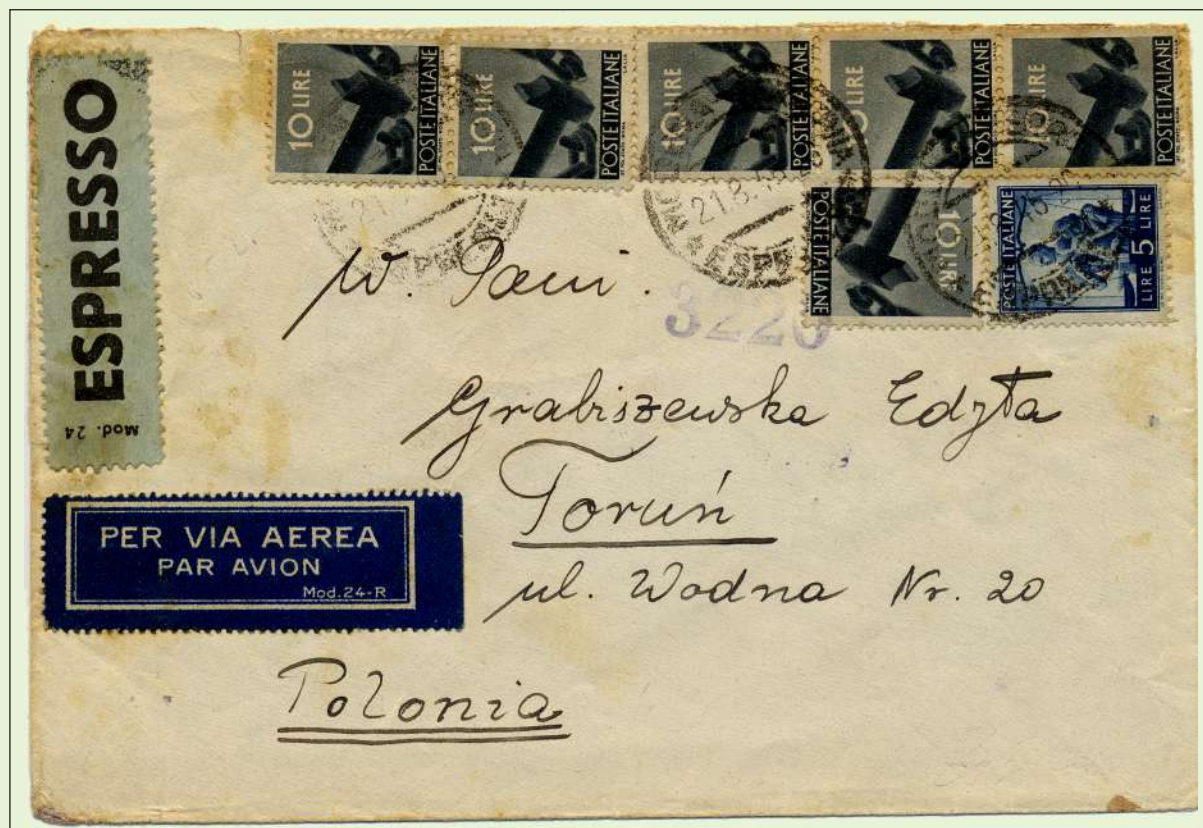 ESPRESSO
Mod. 24
10 LIRE POSTE ITALIANE
10 LIRE POSTE ITALIANE
10 LIRE POSTE ITALIANE
10 LIRE POSTE ITALIANE
10 LIRE POSTE ITALIANE
10 LIRE POSTE ITALIANE
POSTE ITALIANE LIRE 5
W. Pani.
3220
Grabiszewska Edyta
Toruń
ul. Wodna Nr. 20
PER VIA AEREA
PAR AVION
Mod. 24-R
Polonia